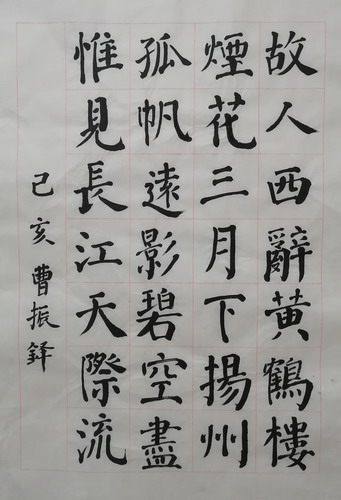 故人西辭黃鶴樓
煙花三月下揚州
孤帆遠影碧空盡
惟見長江天際流
己亥曹振鐸